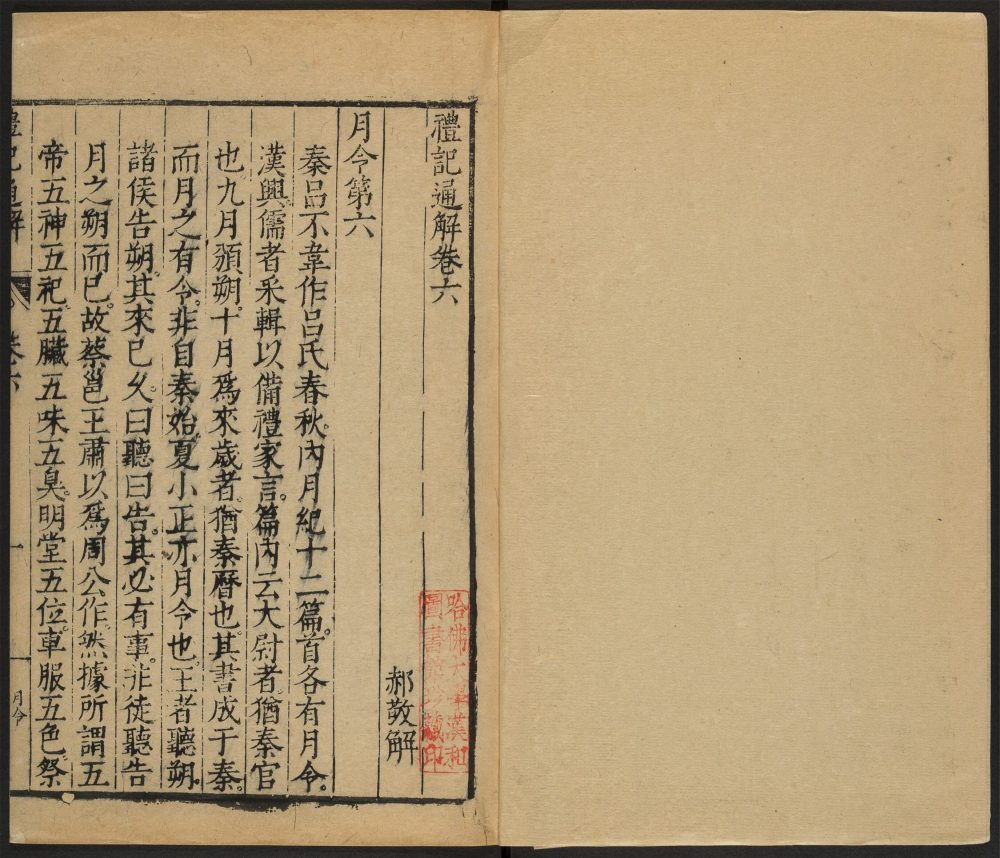 禮記通解卷六
哈佛大學漢和
圖書館珍藏印
郝敬解
月令第六
秦呂不韋作呂氏春秋。內月紀十二篇。首各有月令。
漢興儒者采輯以備禮家言。篇內云大尉者猶秦官
也。九月頒朔。十月爲來歲者。猶秦曆也。其書成于秦。
而月之有令。非自秦始。夏小正亦月令也。王者聽朔。
諸侯告朔。其來已久。曰聽曰告。其必有事。非徒聽告
月之朔而已。故蔡邕王肅以爲周公作。然據所謂五
帝五神五祀。五臟五味五臭。明堂五位。車服五色。祭
禮記通解
卷六
一
月令